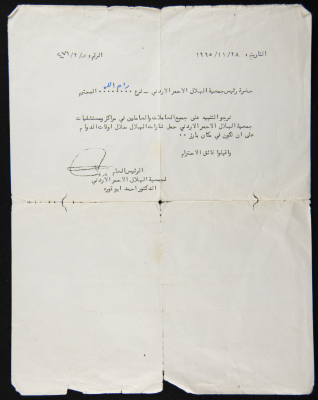 التاريخ: ١٩٦٥/١١/٢٨
الرقم:
حضرة رئيس جمعية الهلال الاحمر الاردني - فرع رام الله المحترم
نرجو التنبيه على جميع العاملات والعاملين في مراكز ومستشفيات
جمعية الهلال الاحمر الاردني حمل شارات الهلال خلال اوقات الدوام
على ان تكون في مكان بارز ٠٠
واقبلوا فائق الاحترام
الرئيس العام
لجمعية الهلال الاحمر الاردني
الدكتور احمد ابو قوره